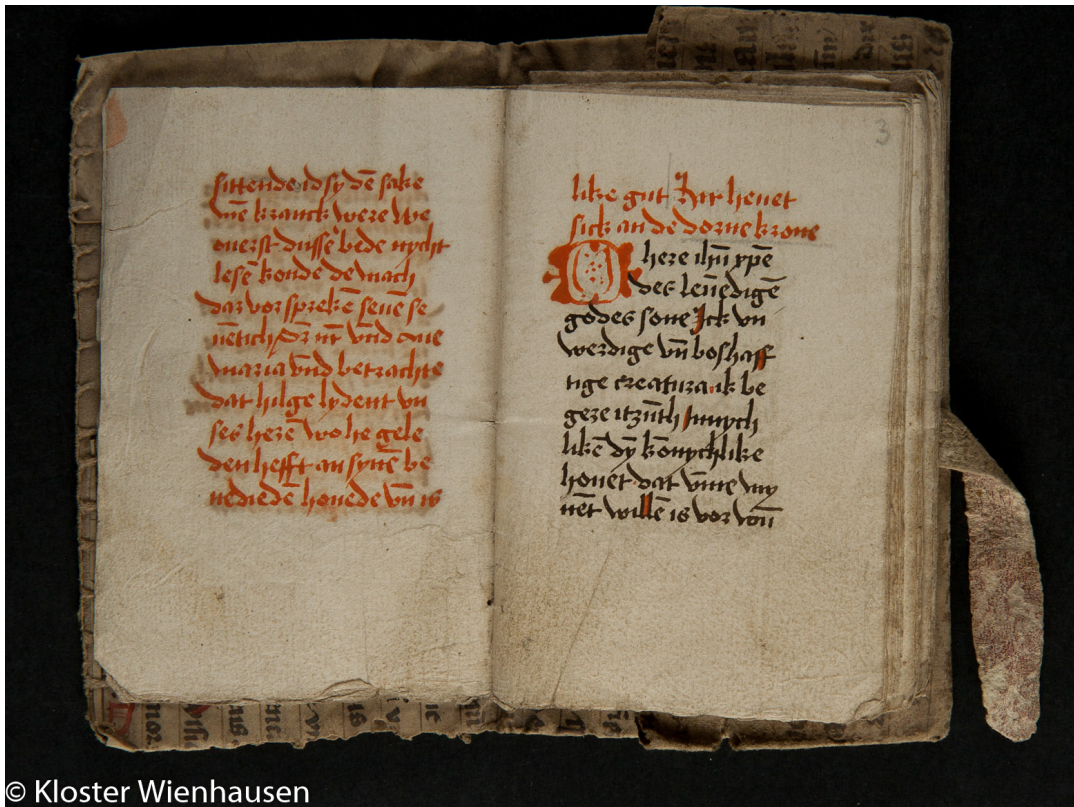 sittende id sy dē sake
vn̄e kranck were We
ouerst dusse bede nycht
lesē konde de mach
dar vor sprekē seuē se
uētich pr̄ nr̄ vn̄d aue
maria vn̄d betrachte
dat hilge lydent vn
ses herē wo he gele
den hefft an synē be
nediedē houede vn̄ is
3
like gut Hir heuet
sick an de dorne krone
O here ihū xpē
des leuēdigē
godes sone Ick vn
werdige vn̄ boshaff
tige creatura ik be
gere itzūth Innych
likē dȳ kōnychlike
houet dat vm̄e my
nēt willē is vor won̄
© Kloster Wienhausen